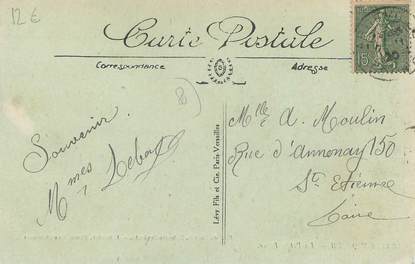 12 €
Carte Postale
Correspondance
Adresse
15
8
Souvenir.
Mmes
Lévy Fils et Cie. Paris-Versailles
Mlle A. Moulin
Rue d'Annonay 150
St Etienne
Loire